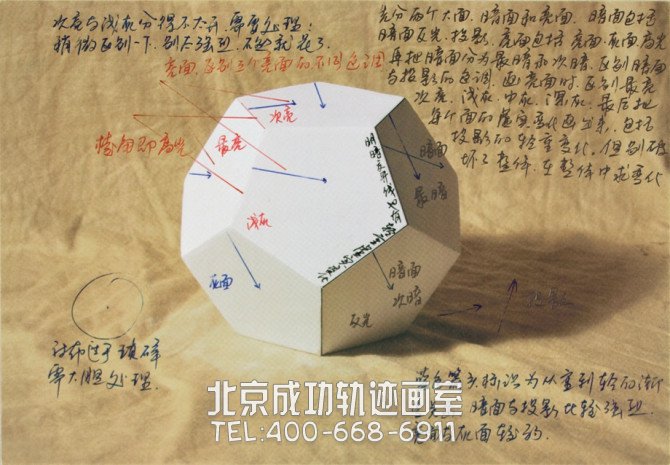 次亮与浅灰分得不太开,需要处理:
稍微区别一下,别太强烈,不然就花了
亮面,区别三个亮面的不同色调
先分两个大面,暗面和亮面,暗面包括
暗面反光,投影,亮面包括亮面,灰面高光
再把暗面分为最暗和次暗,区别暗面
与投影的色调,画亮面时,区别最亮
次亮,浅灰,中灰,深灰,最后把
每个面的虚实变化画出来,包括
投影的轻重变化,但别破
坏了整体,在整体中求变化
次亮
棱角即高光
最亮
暗面
最暗
明暗交界线
浅灰
灰面
暗面
次暗
反光
投影
衬布过于琐碎
需大胆处理.
箭头标识为从重到轻的渐
暗面与投影比较强烈
灰面较弱.
北京成功轨迹画室
TEL:400-668-6911